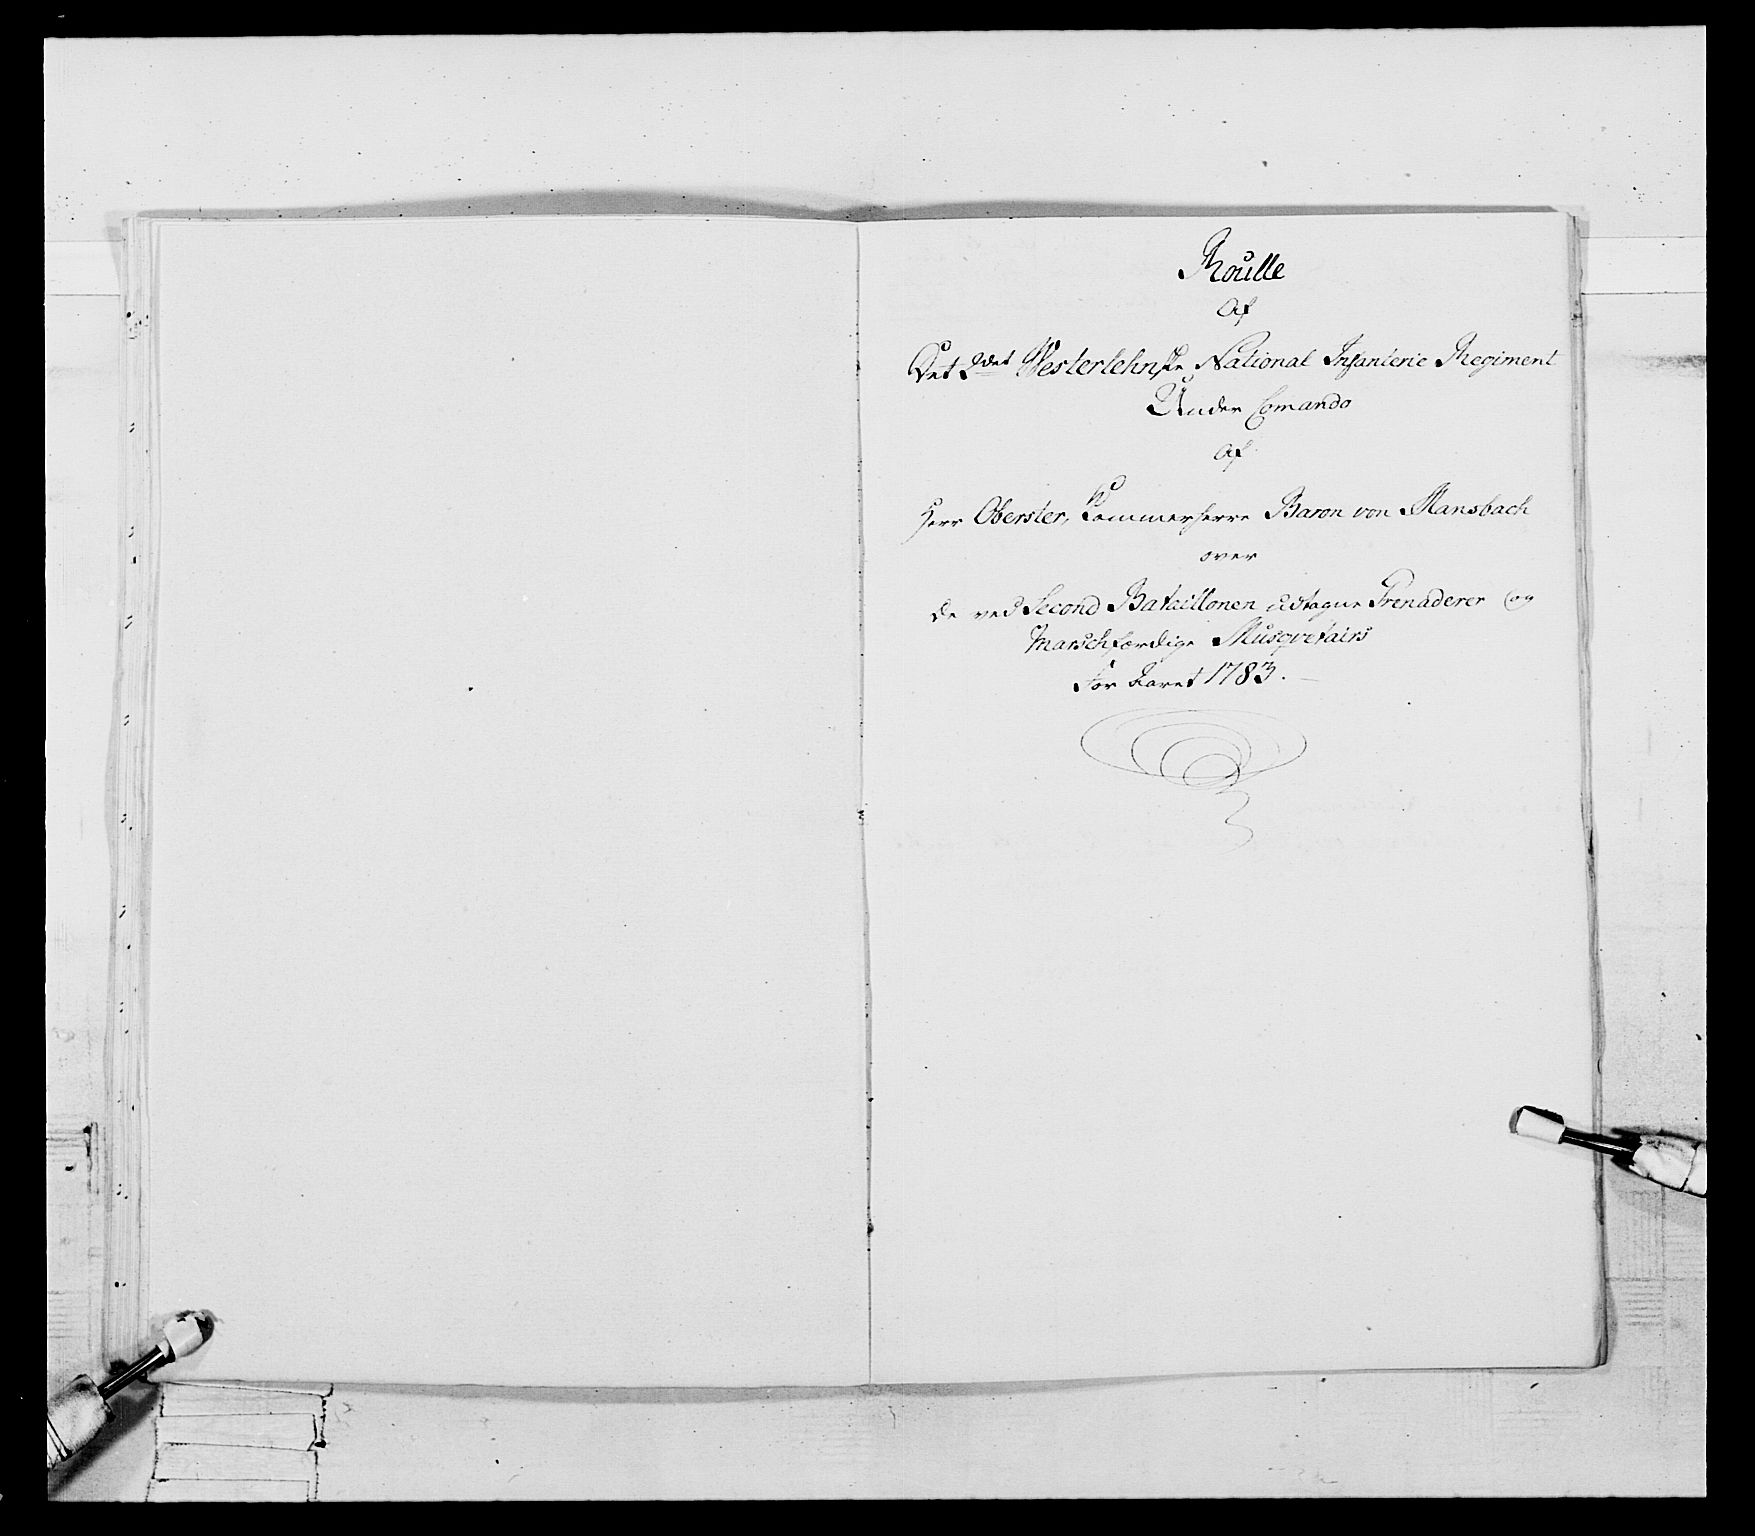 Roulle
Af
Det 2det Vesterlehnske National Infanterie Regiment
Under Comando
Af
Herr Oberster, Kammerherre Baron von Mansbach
over
de ved Second Bataillonen udtagne Grenaderer og
Marschfærdige Musqvetairs
For Aaret 1783.